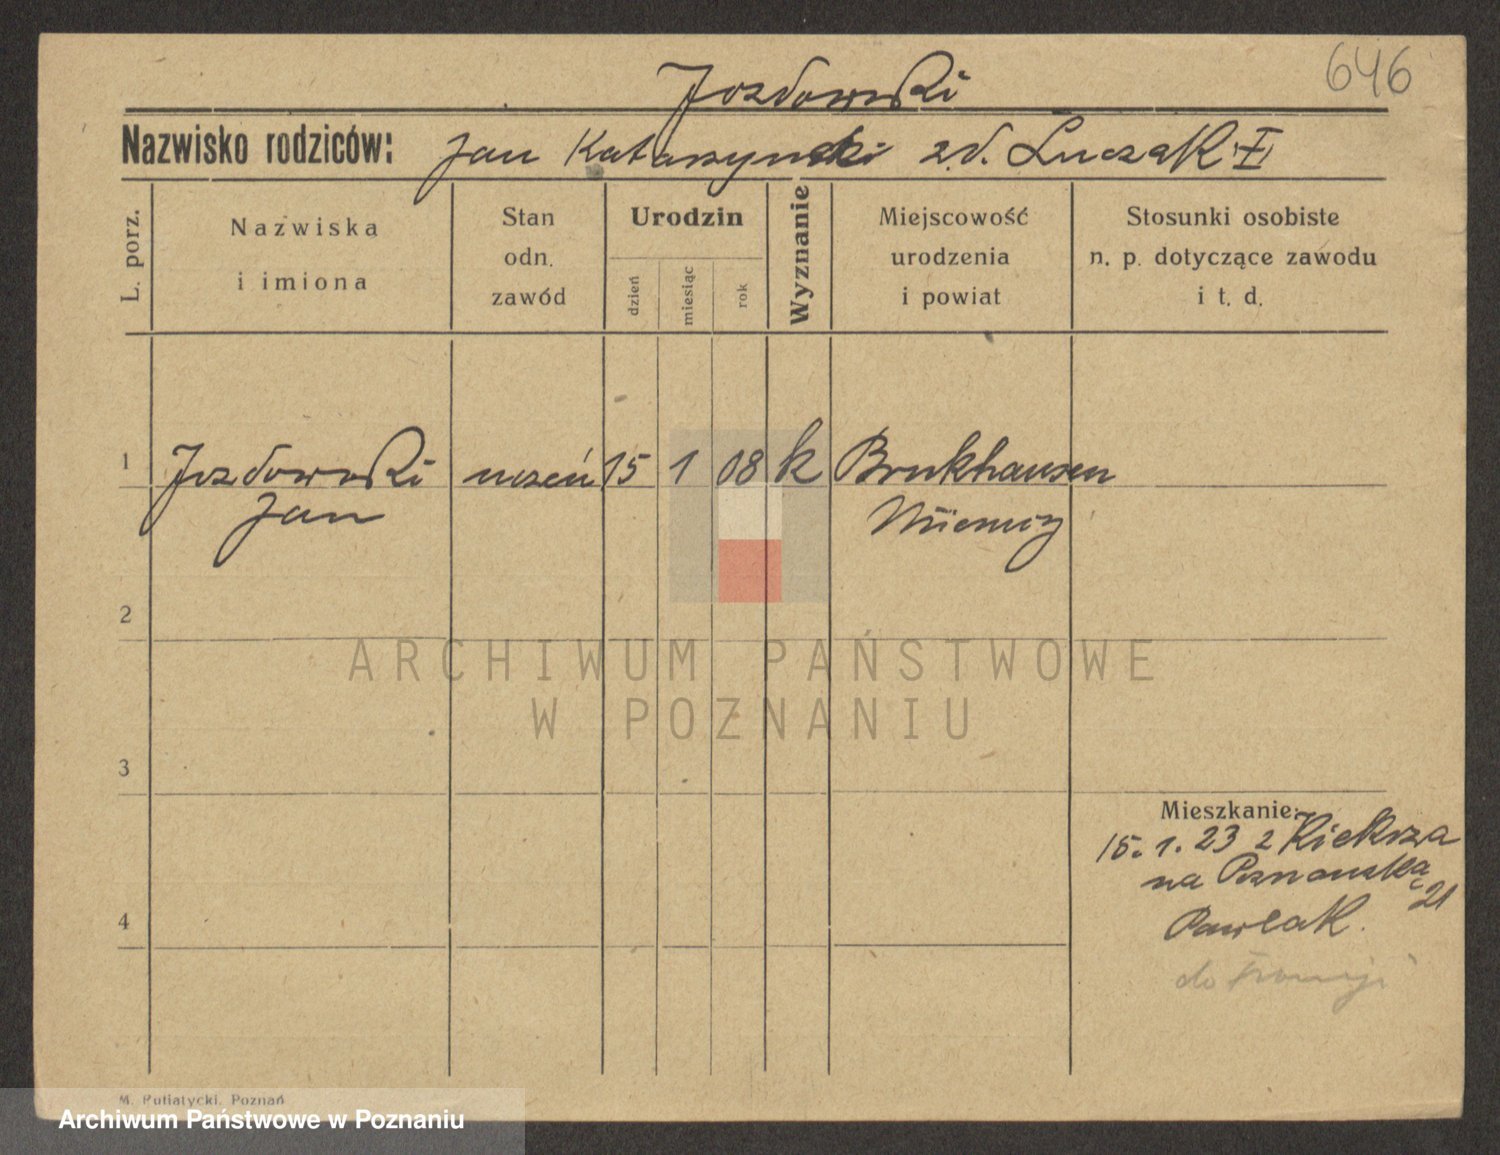 646
Jozdowski
Nazwisko rodziców: Jan Katarzynski zd. Luczak
L. porz.
Nazwiska
i imiona
Stan
odn.
zawód
Urodzin
dzień
miesiąc
rok
Wyznanie
Miejscowość
urodzenia
i powiat
Stosunki osobiste
n. p. dotyczące zawodu
i t. d.
1 Jozdowski uczeń 15 1 08 k Brukhausen
Jan Niemcy
2
ARCHIWUM PAŃSTWOWE
W POZNANIU
3
Mieszkanie:
15.1.23 z Kiekrza
na Poznańską
21
Pawlak.
4
do Francji
M. Putiatycki, Poznań
Archiwum Państwowe w Poznaniu